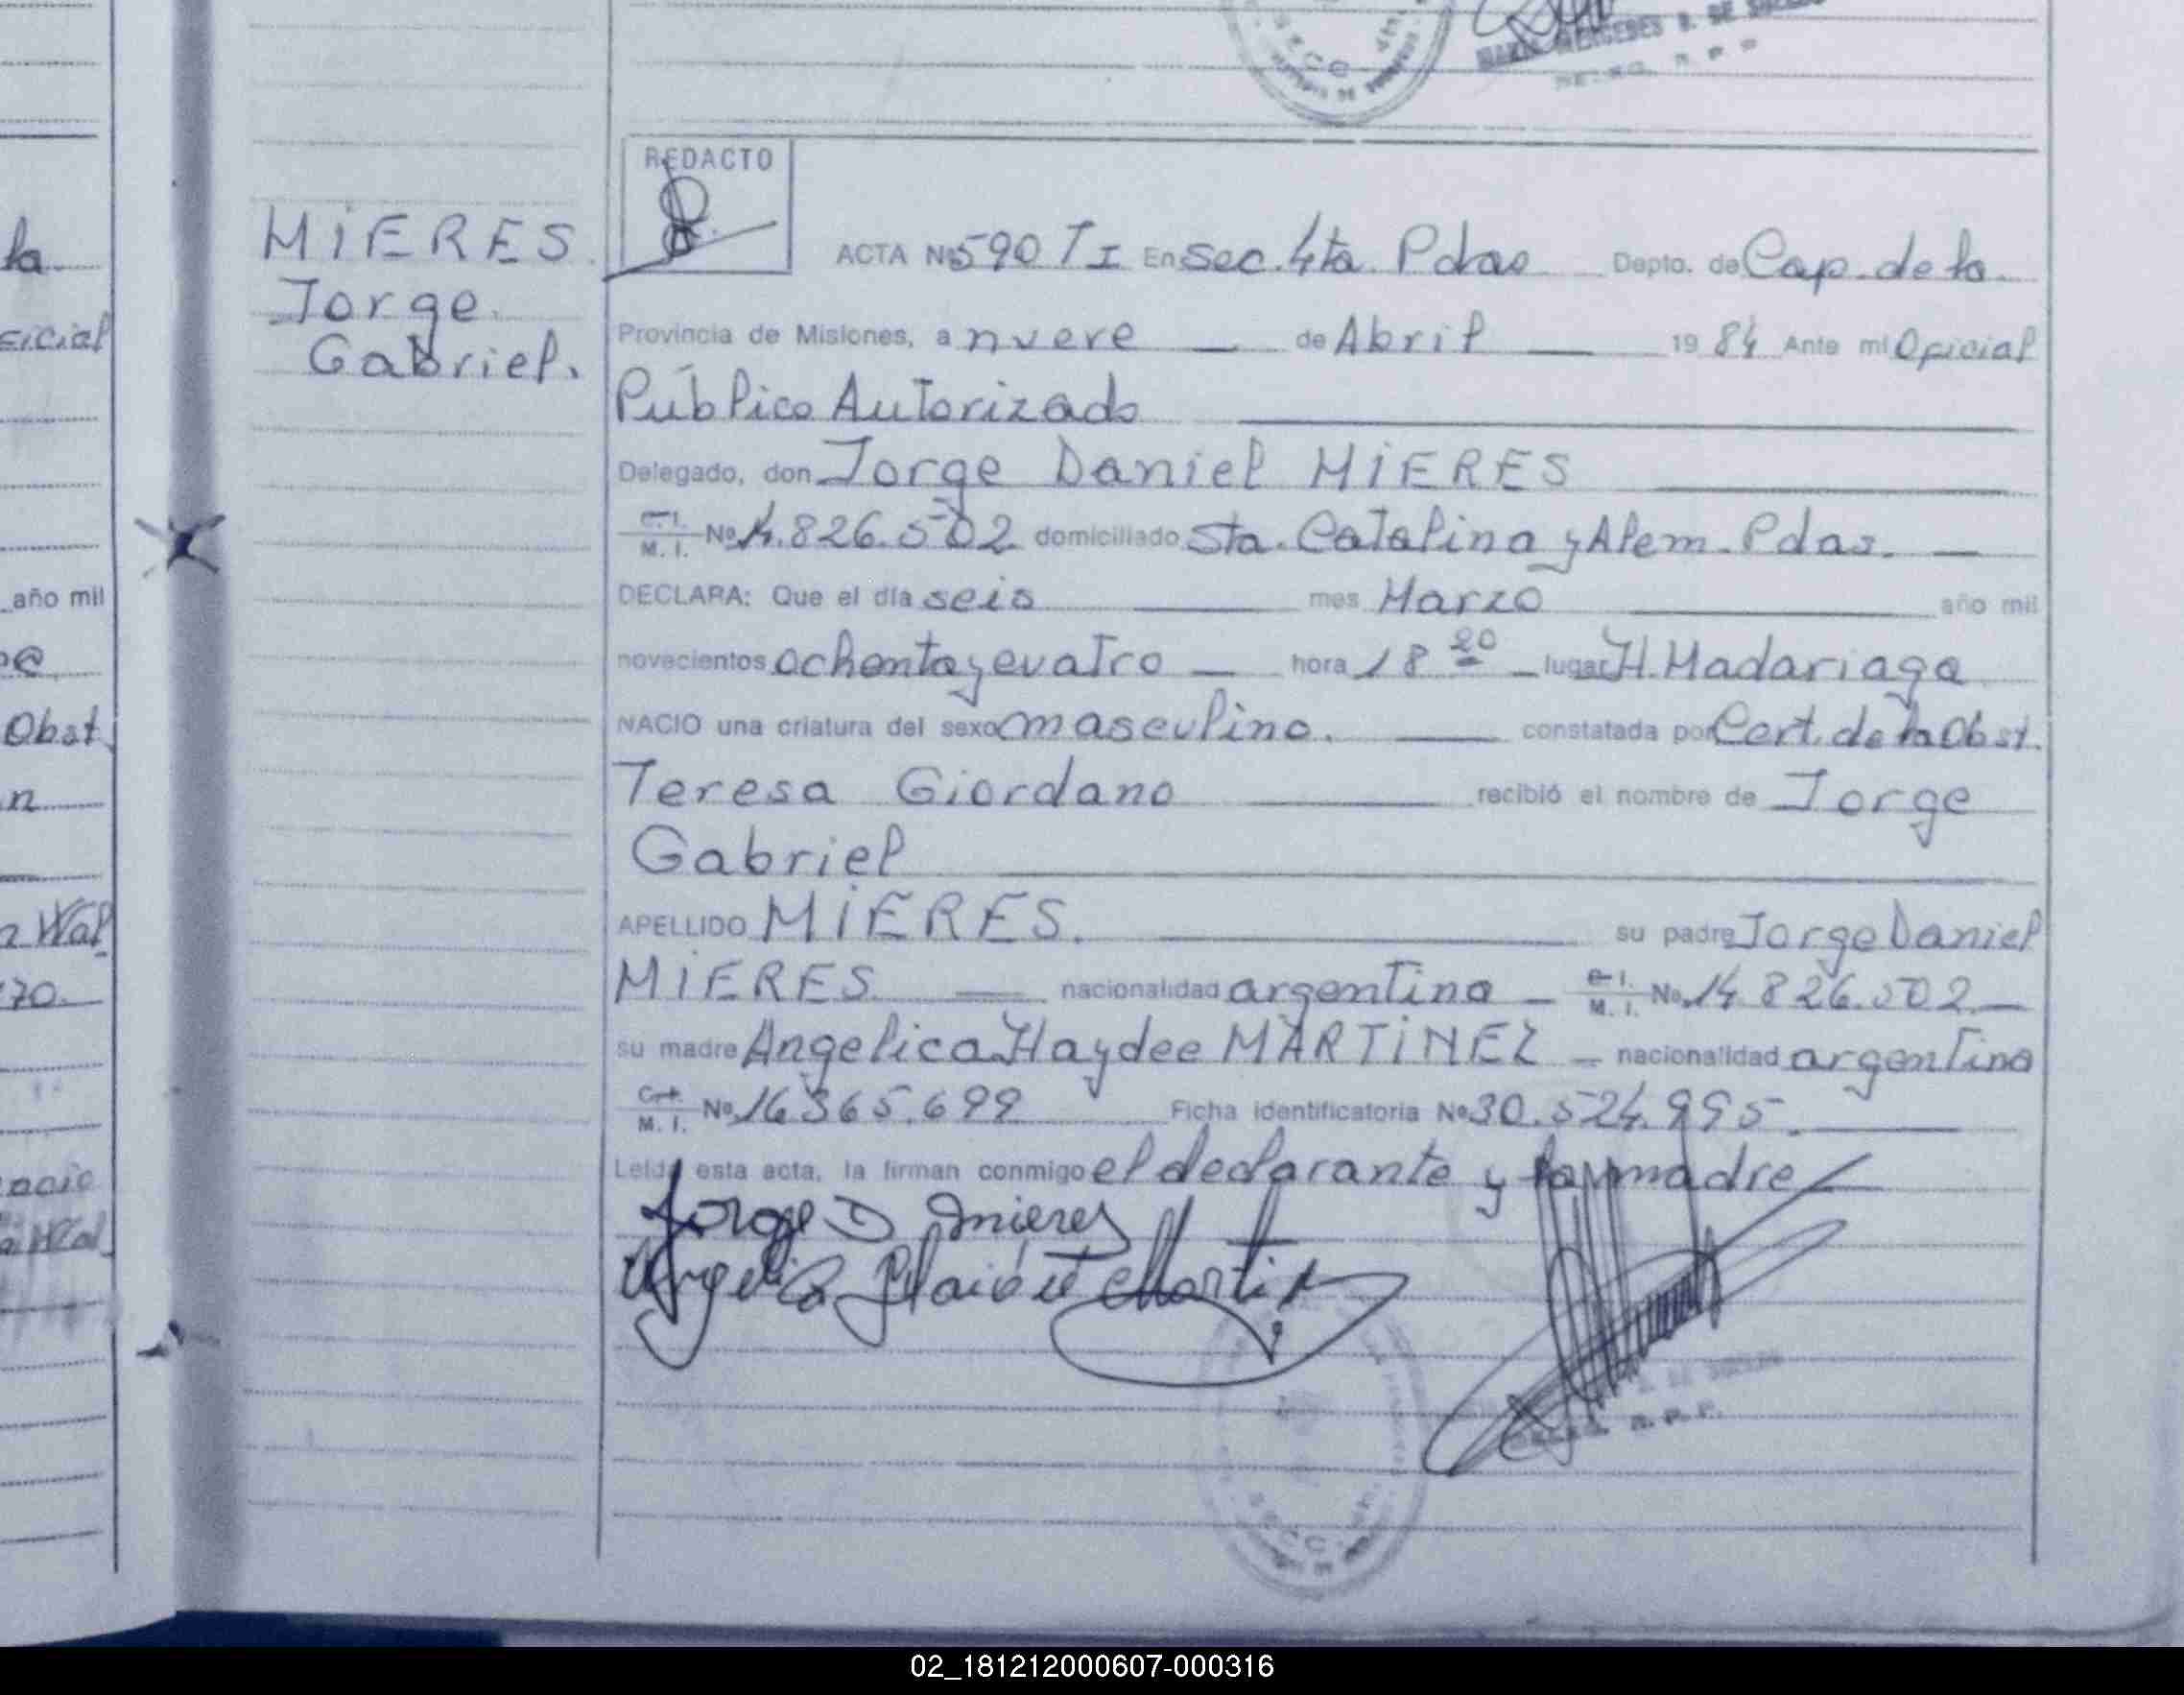 MARIA MERCEDES
REDACTO
MIERES
Jorge
Gabriel.
ACTA Nº 590 TI En Sec. 4ta. Pdas Depto. de Cap. de la
Provincia de Misiones, a nueve de Abril 19 84 Ante mi Oficial
Público Autorizado
Delegado, don Jorge Daniel MIERES
C.I. M. I. Nº 14.826.502 domiciliado Sta. Catalina y Alem. Pdas.
DECLARA: Que el día seis mes Marzo año mil
novecientos ochenta y cuatro hora 18 20 lugar H. Madariaga
NACIO una criatura del sexo masculino. constatada por Cert. de la Obst.
Teresa Giordano recibió el nombre de Jorge
Gabriel
APELLIDO MIERES. su padre Jorge Daniel
MIERES nacionalidad argentina C.I. M. I. Nº 14.826.502
su madre Angelica Haydee MARTINEZ nacionalidad argentina
M. I. Nº 16365.699 Ficha identificatoria Nº 30.524.995.
Leída esta acta, la firman conmigo el declarante y la madre
Jorge D Mieres
la
Oficial
año mil
Obst.
n
Wal
70.
02_181212000607-000316